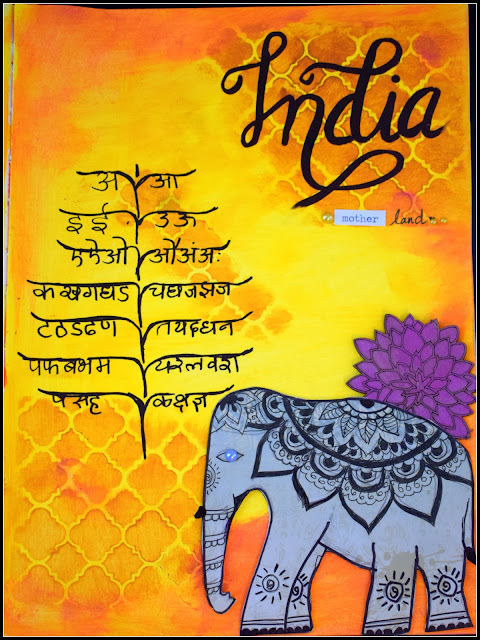 India
mother land
अ आ
इ ई उ ऊ
ए ऐ ओ औ अं अः
क ख ग घ ड च छ ज झ ञ
ट ठ ड ढ ण त थ द ध न
प फ ब भ म य र ल व श
ष स ह ळ क्ष ज्ञ